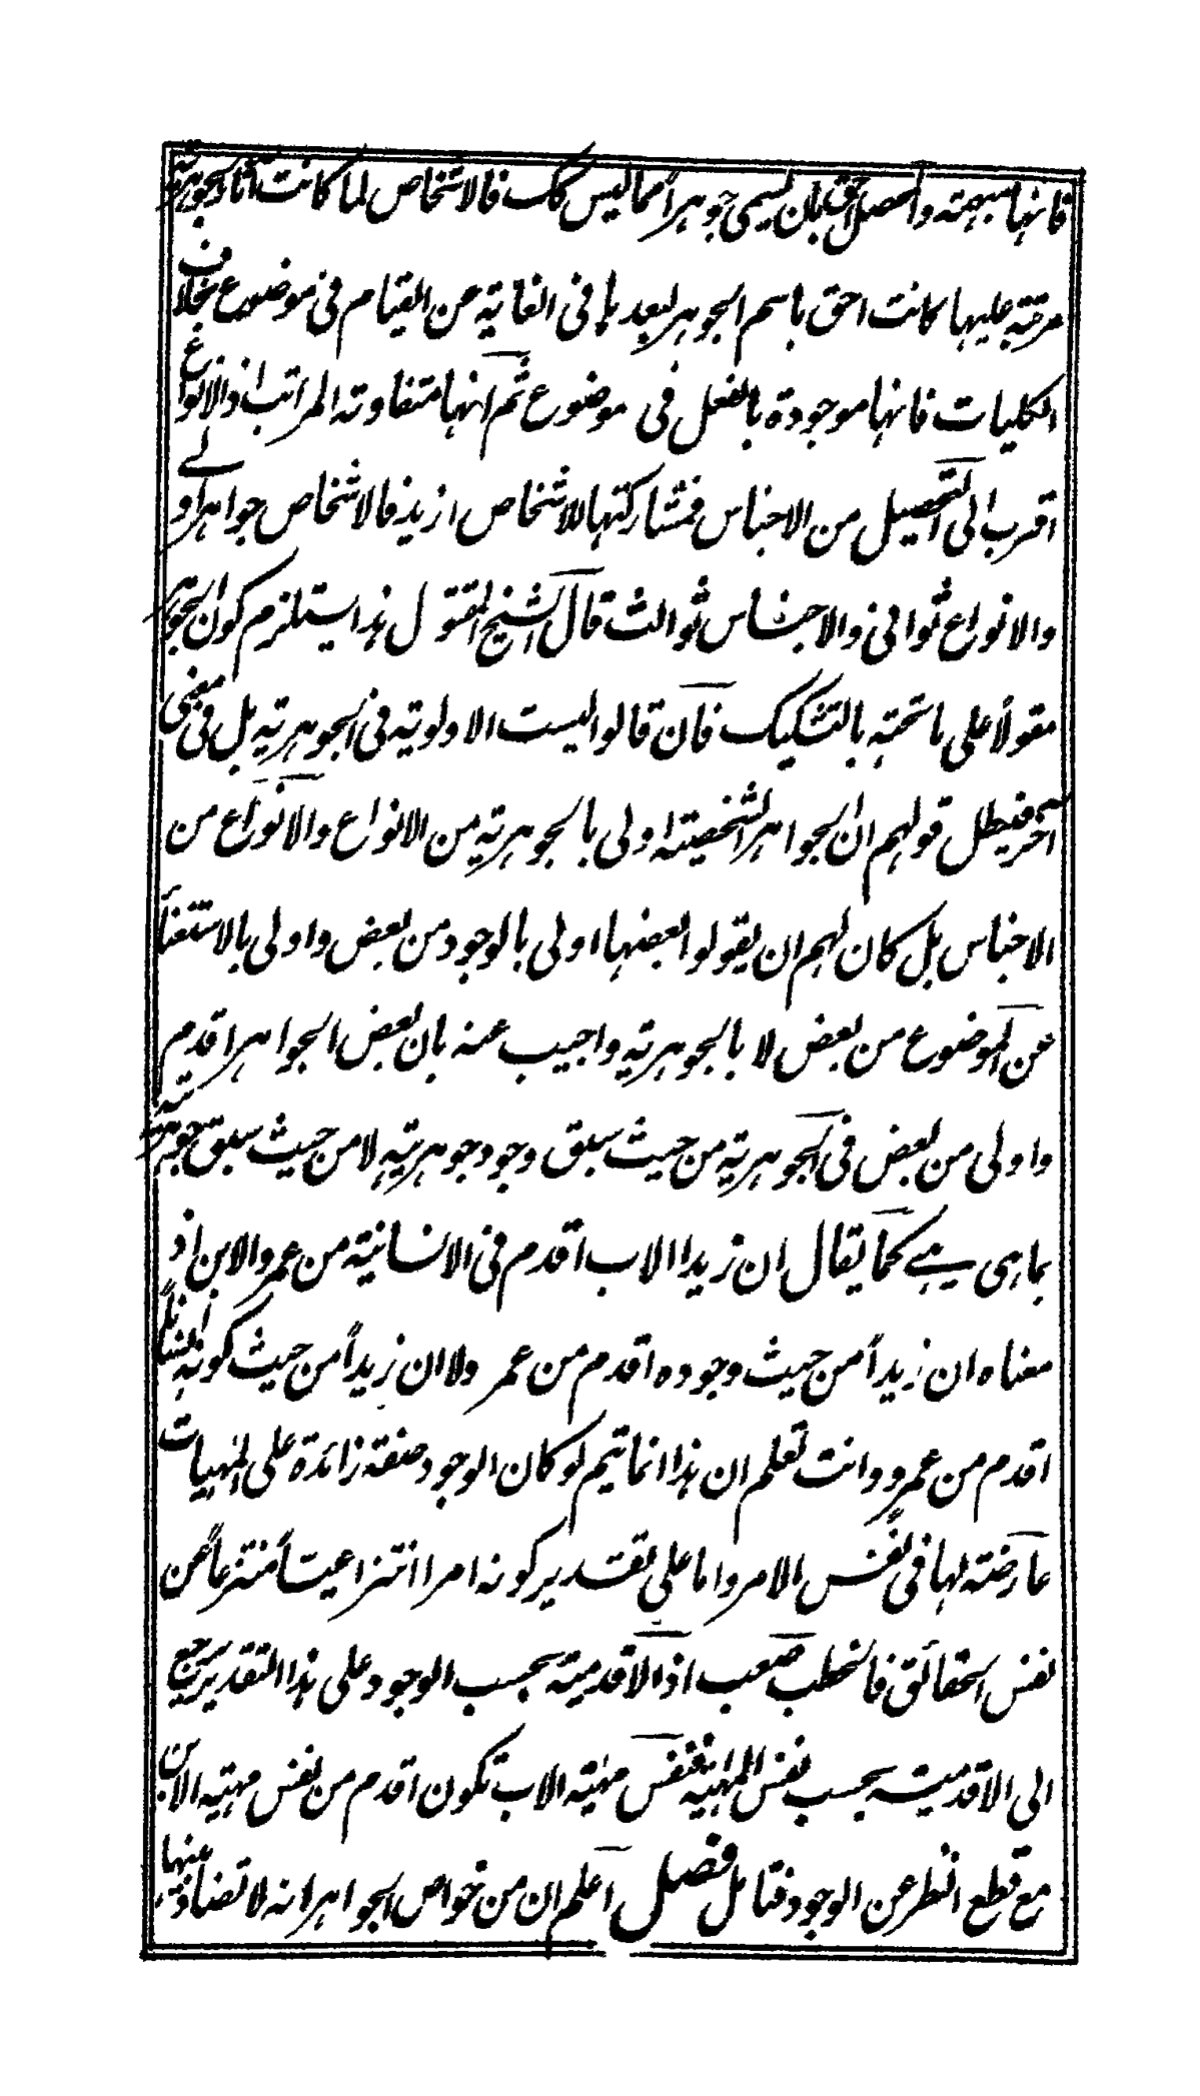 فانها مبهمة والمحصل احق بان يسمى جوهرا مما ليس كك فالاشخاص لما كانت آثار الجوهرية
مرتبة عليها كانت احق باسم الجوهر لبعدها فى الغاية عن القيام فى موضوع بخلاف
الكليات فانها موجودة بالفعل فى موضوع ثم انها متفاوتة المراتب اذ الانواع
اقرب الى التحصيل من الاجناس فمشاركتها للاشخاص ازيد فالاشخاص جواهر اولے
والانواع ثوانى والاجناس ثوالث قال الشيخ المقتول هذا يستلزم كون الجوهر
مقولاً على ما تحته بالتشكيك فان قالوا ليست الاولوية فى الجوهرية بل فى معنى
آخر فيبطل قولهم ان الجواهر الشخصية اولى بالجوهرية من الانواع والانواع من
الاجناس بل كان لهم ان يقولوا بعضها اولى بالوجود من بعض واولى بالاستغناء
عن الموضوع من بعض لا بالجوهرية واجيب عنه بان بعض الجواهر اقدم
واولى من بعض فى الجوهرية من حيث سبق وجود جوهريته لا من حيث سبق جوهريته
بما هى هے كما يقال ان زيدا الاب اقدم فى الانسانية من عمرو الابن اذ
معناه ان زيداً من حيث وجوده اقدم من عمرو لا ان زيداً من حيث كونه انسانا
اقدم من عمرو وانت تعلم ان هذا انما يتم لو كان الوجود صفة زائدة على المهيات
عارضة لها فى نفس الامر واما على تقدير كونه امرا انتزاعيتاً منتزعاً عن
نفس الحقائق فالخطب صعب اذ الاقدمية بحسب الوجود على هذا التقدير يرجع
الى الاقدمية بحسب نفس المهية فنفس مهية الاب تكون اقدم من نفس مهية الابن
مع قطع النظر عن الوجود فتامل فصل اعلم ان من خواص الجواهر انه لا تضاد عنها